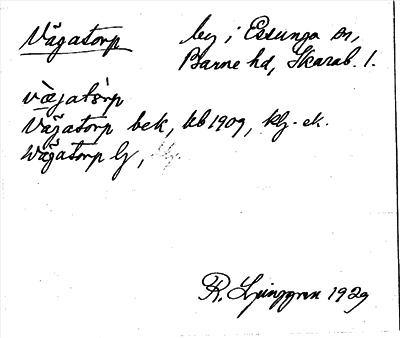 Vågatorp by i Essunga sn,
Barne hd, Skarab. l.
Vågatorp bek, kb 1909, klj. ek.
Wågatorp lj,
R. Ljunggren 1929